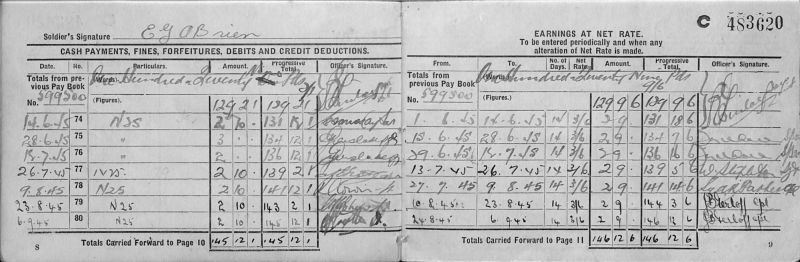 Soldier's Signature E G O'Brien
CASH PAYMENTS, FINES, FORFEITURES, DEBITS AND CREDIT DEDUCTIONS.
Date. No. Particulars. Amount. Progressive Total. Officer's Signature.
Totals from previous Pay Book One Hundred & Twenty Nine Pds 2/1
No. 599300 (Figures). 129 2 1 129 2 1
14.6.45 74 N25 2 10 . 131 12 1
28.6.45 75 " 3 . . 134 12 1
13.7.45 76 " 2 . . 136 12 1
26.7.45 77 N25 2 10 . 139 2 1
9.8.45 78 N25 2 10 . 141 12 1
23.8.45 79 N25 2 10 . 143 2 1
6.9.45 80 N25 2 10 . 145 12 1
8 Totals Carried Forward to Page 10 145 12 1 145 12 1
C 483620
EARNINGS AT NET RATE.
To be entered periodically and when any
alteration of Net Rate is made.
From. To. No. of Days. Net Rate. Amount. Progressive Total. Officer's Signature.
Totals from previous Pay Book One Hundred & Twenty Nine Pds 9/6
No. 599300 (Figures). 129 9 6 129 9 6
1.6.45 14.6.45 14 3/6 2 9 . 131 18 6
15.6.45 28.6.45 14 3/6 2 9 . 134 7 6
29.6.45 12.7.45 14 3/6 2 9 . 136 16 6
13.7.45 26.7.45 14 3/6 2 9 . 139 5 6
27.7.45 9.8.45 14 3/6 2 9 . 141 14 6
10.8.45 23.8.45 14 3/6 2 9 . 144 3 6
24.8.45 6.9.45 14 3/6 2 9 . 146 12 6
Totals Carried Forward to Page 11 146 12 6 146 12 6
9